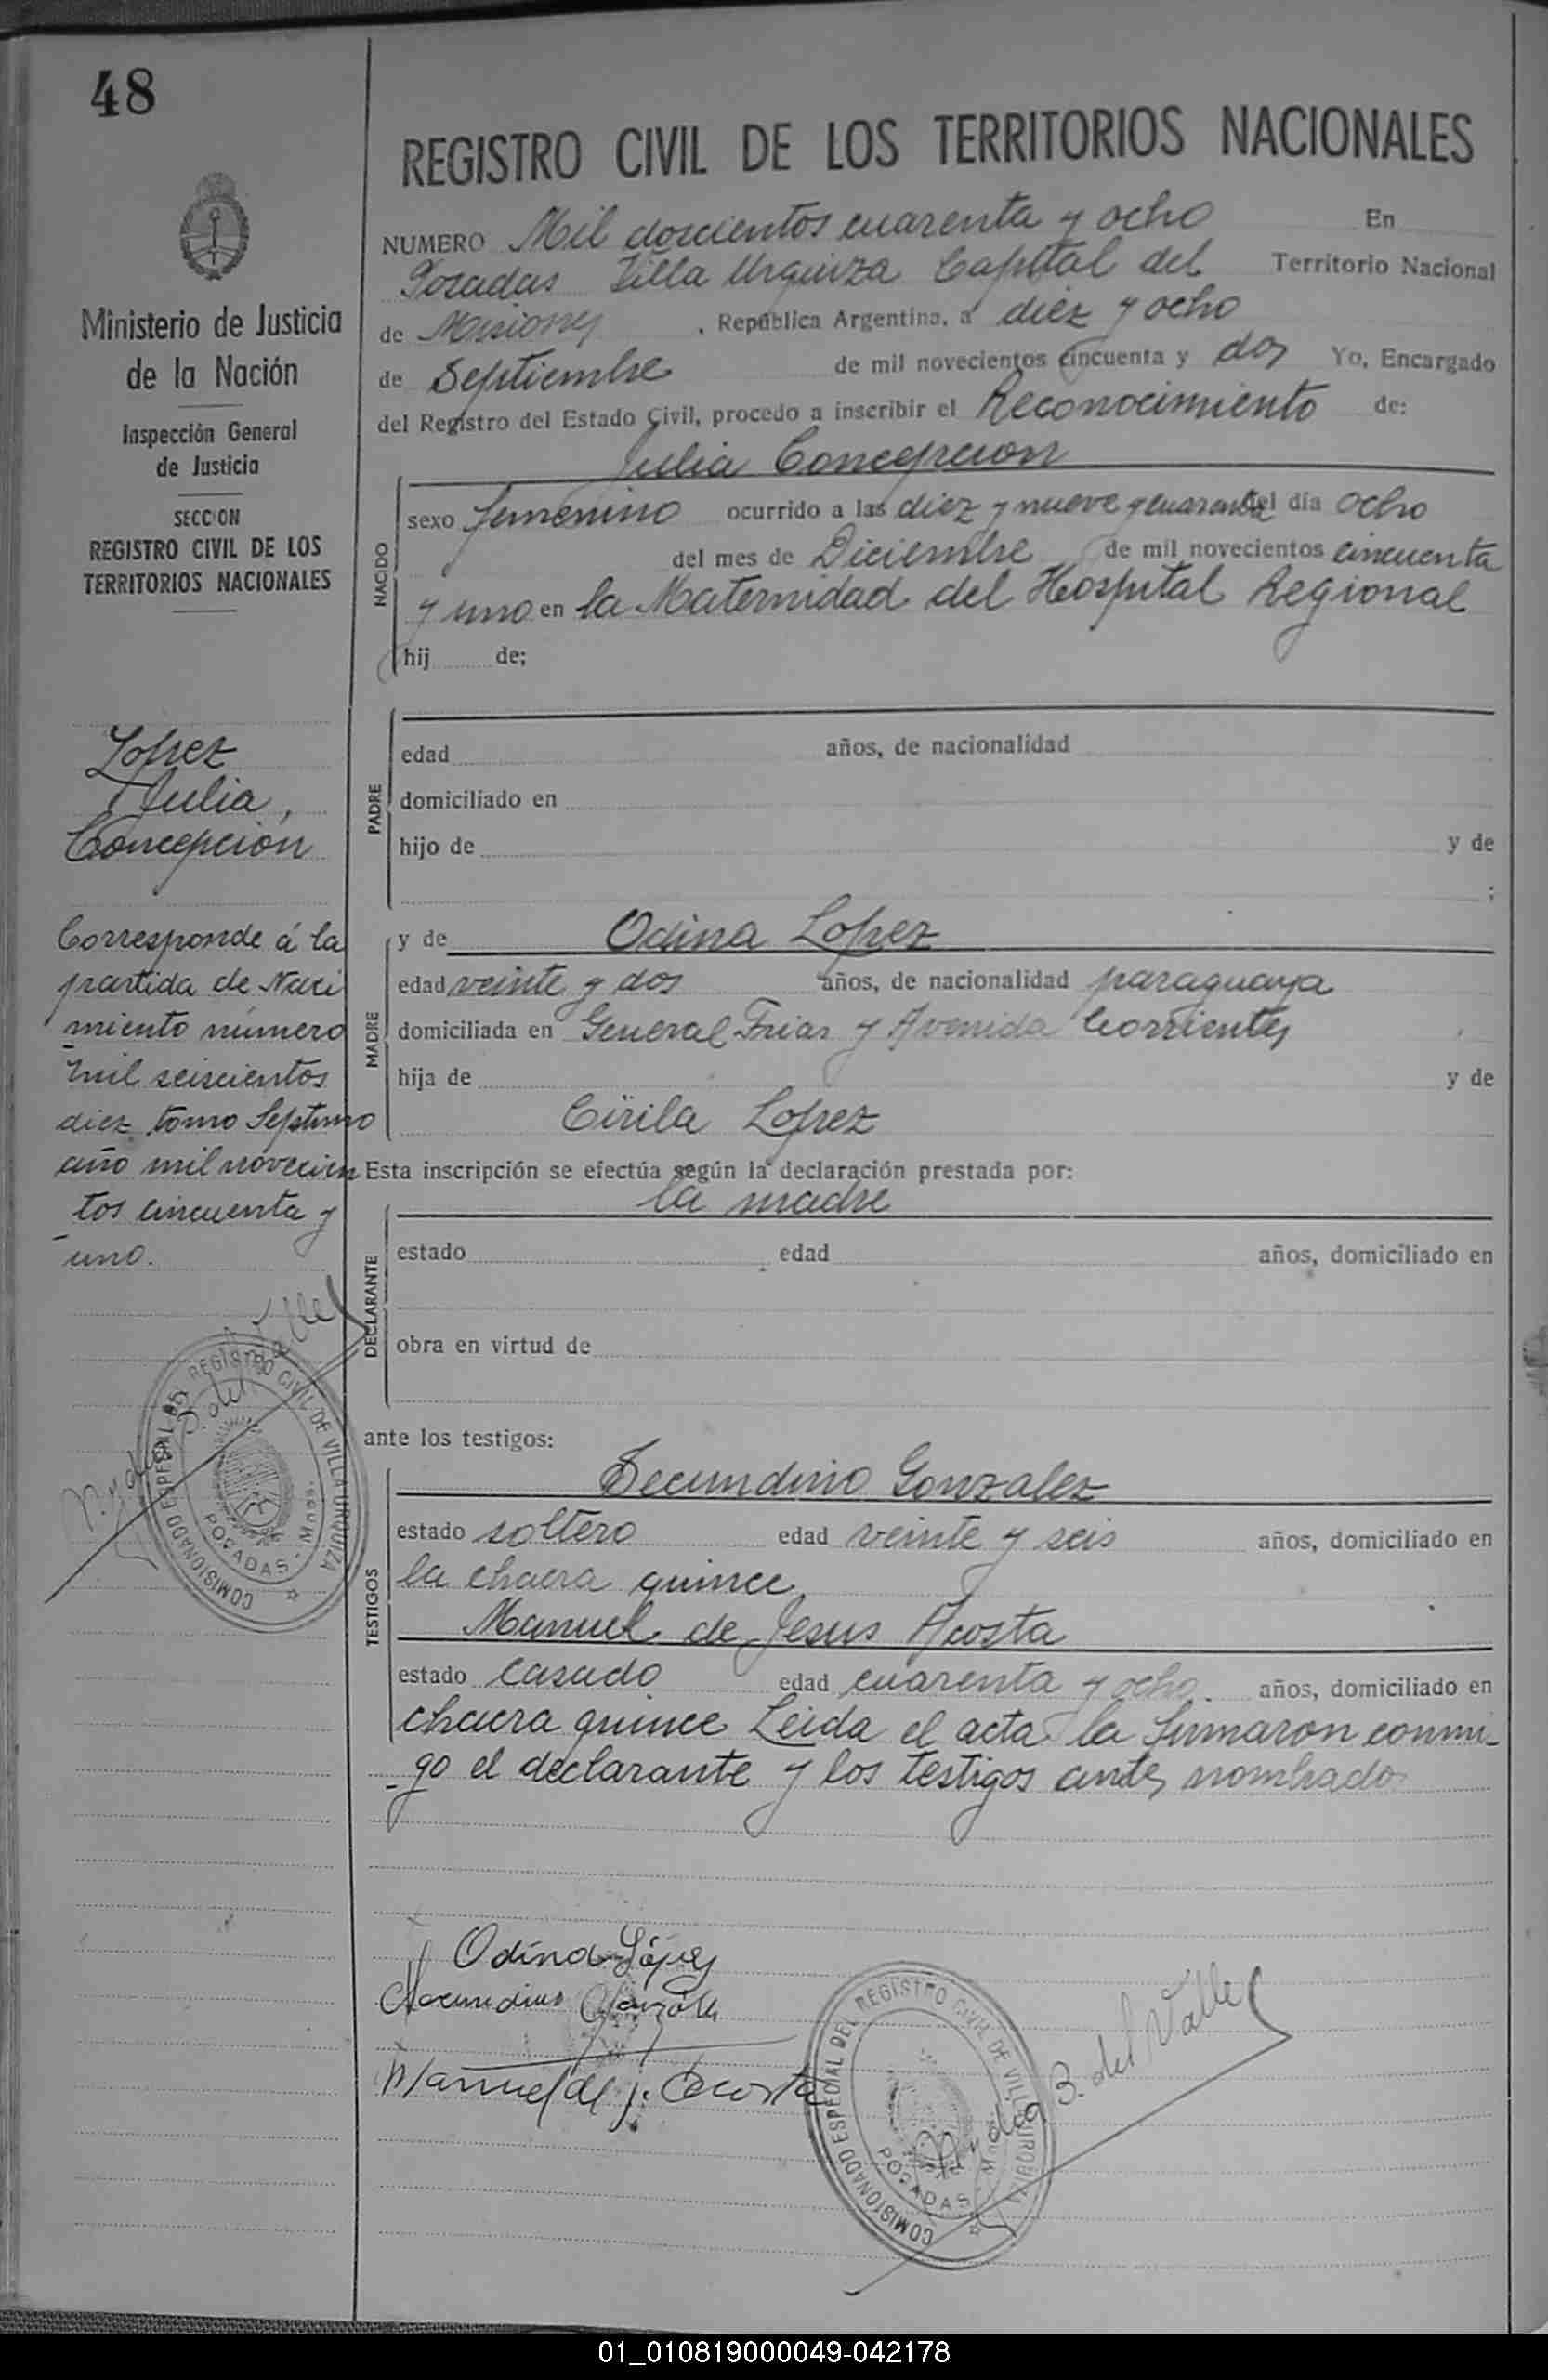 48
REGISTRO CIVIL DE LOS TERRITORIOS NACIONALES
Ministerio de Justicia
de la Nación
Inspección General
de Justicia
SECCION
REGISTRO CIVIL DE LOS
TERRITORIOS NACIONALES
NUMERO Mil doscientos cuarenta y ocho En
Posadas Villa Urquiza Capital del Territorio Nacional
de Misiones, República Argentina, a diez y ocho
de Septiembre de mil novecientos cincuenta y dos Yo, Encargado
del Registro del Estado Civil, procedo a inscribir el Reconocimiento de:
Julia Concepcion
NACIDO
sexo femenino ocurrido a las diez y nueve y cuarenta del día ocho
del mes de Diciembre de mil novecientos cincuenta
y uno en la Maternidad del Hospital Regional
hij de;
Lopez
Julia,
Concepción
PADRE
edad años, de nacionalidad
domiciliado en
hijo de y de
;
Corresponde á la
partida de Naci
miento número
mil seiscientos
diez tomo Septimo
año mil novecien
tos cincuenta y
uno.
MADRE
y de Odina Lopez
edad veinte y dos años, de nacionalidad paraguaya
domiciliada en General Frias y Avenida Corrientes
hija de y de
Cirila Lopez
Esta inscripción se efectúa según la declaración prestada por:
la madre
DECLARANTE
estado edad años, domiciliado en
obra en virtud de
COMISIONADO ESPECIAL DEL REGISTRO CIVIL DE VILLA URQUIZA
POSADAS - Mnes.
B. del Valle
ante los testigos:
TESTIGOS
Secundino Gonzalez
estado soltero edad veinte y seis años, domiciliado en
la chacra quince
Manuel de Jesus Acosta
estado casado edad cuarenta y ocho. años, domiciliado en
chacra quince Leida el acta la firmaron conmi-
-go el declarante y los testigos antes nombrado
Odina López
Secundino Gonzáles
Manuel de j. Acosta
COMISIONADO ESPECIAL DEL REGISTRO CIVIL DE VILLA URQUIZA
POSADAS - Mnes.
B. del Valle
01_010819000049-042178